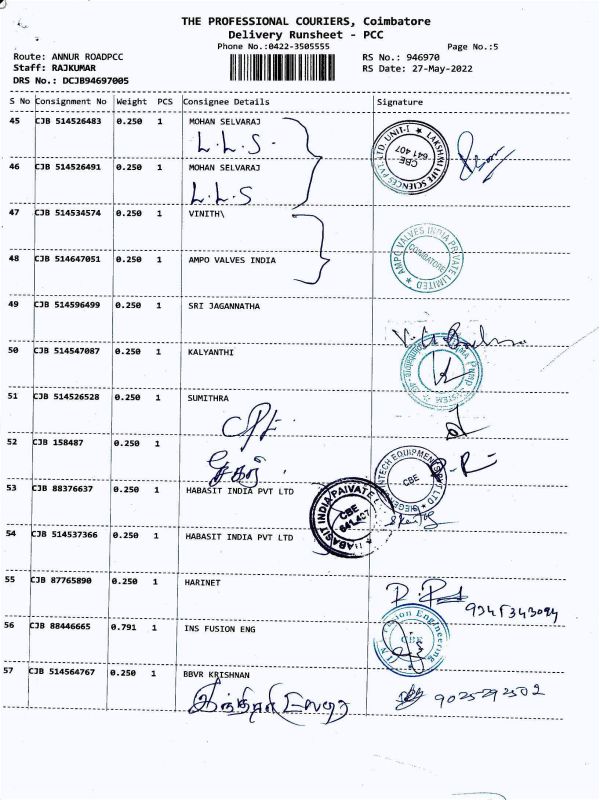 THE PROFESSIONAL COURIERS, Coimbatore
Delivery Runsheet - PCC
Phone No.:0422-3505555
Page No.:5
Route: ANNUR ROADPCC
RS No.: 946970
Staff: RAJKUMAR
RS Date: 27-May-2022
DRS No.: DCJB94697005
S No Consignment No Weight PCS Consignee Details Signature
45 CJB 514526483 0.250 1 MOHAN SELVARAJ
L.L.S.
LAKSHMI LIFE SCIENCES PVT. LTD. UNIT-I ★
CBE
641 407
46 CJB 514526491 0.250 1 MOHAN SELVARAJ
L.L.S
47 CJB 514534574 0.250 1 VINITH\
48 CJB 514647051 0.250 1 AMPO VALVES INDIA
AMPO VALVES INDIA PRIVATE LIMITED ★
COIMBATORE
49 CJB 514596499 0.250 1 SRI JAGANNATHA
50 CJB 514547087 0.250 1 KALYANTHI
51 CJB 514526528 0.250 1 SUMITHRA
52 CJB 158487 0.250 1
CBE
53 CJB 88376637 0.250 1 HABASIT INDIA PVT LTD
HABASIT INDIA PAIVATE
CBE
641.407
54 CJB 514537366 0.250 1 HABASIT INDIA PVT LTD
55 CJB 87765890 0.250 1 HARINET
9345343094
56 CJB 88446665 0.791 1 INS FUSION ENG
Fusion Engineering
CBE
57 CJB 514564767 0.250 1 BBVR KRISHNAN
9025292502